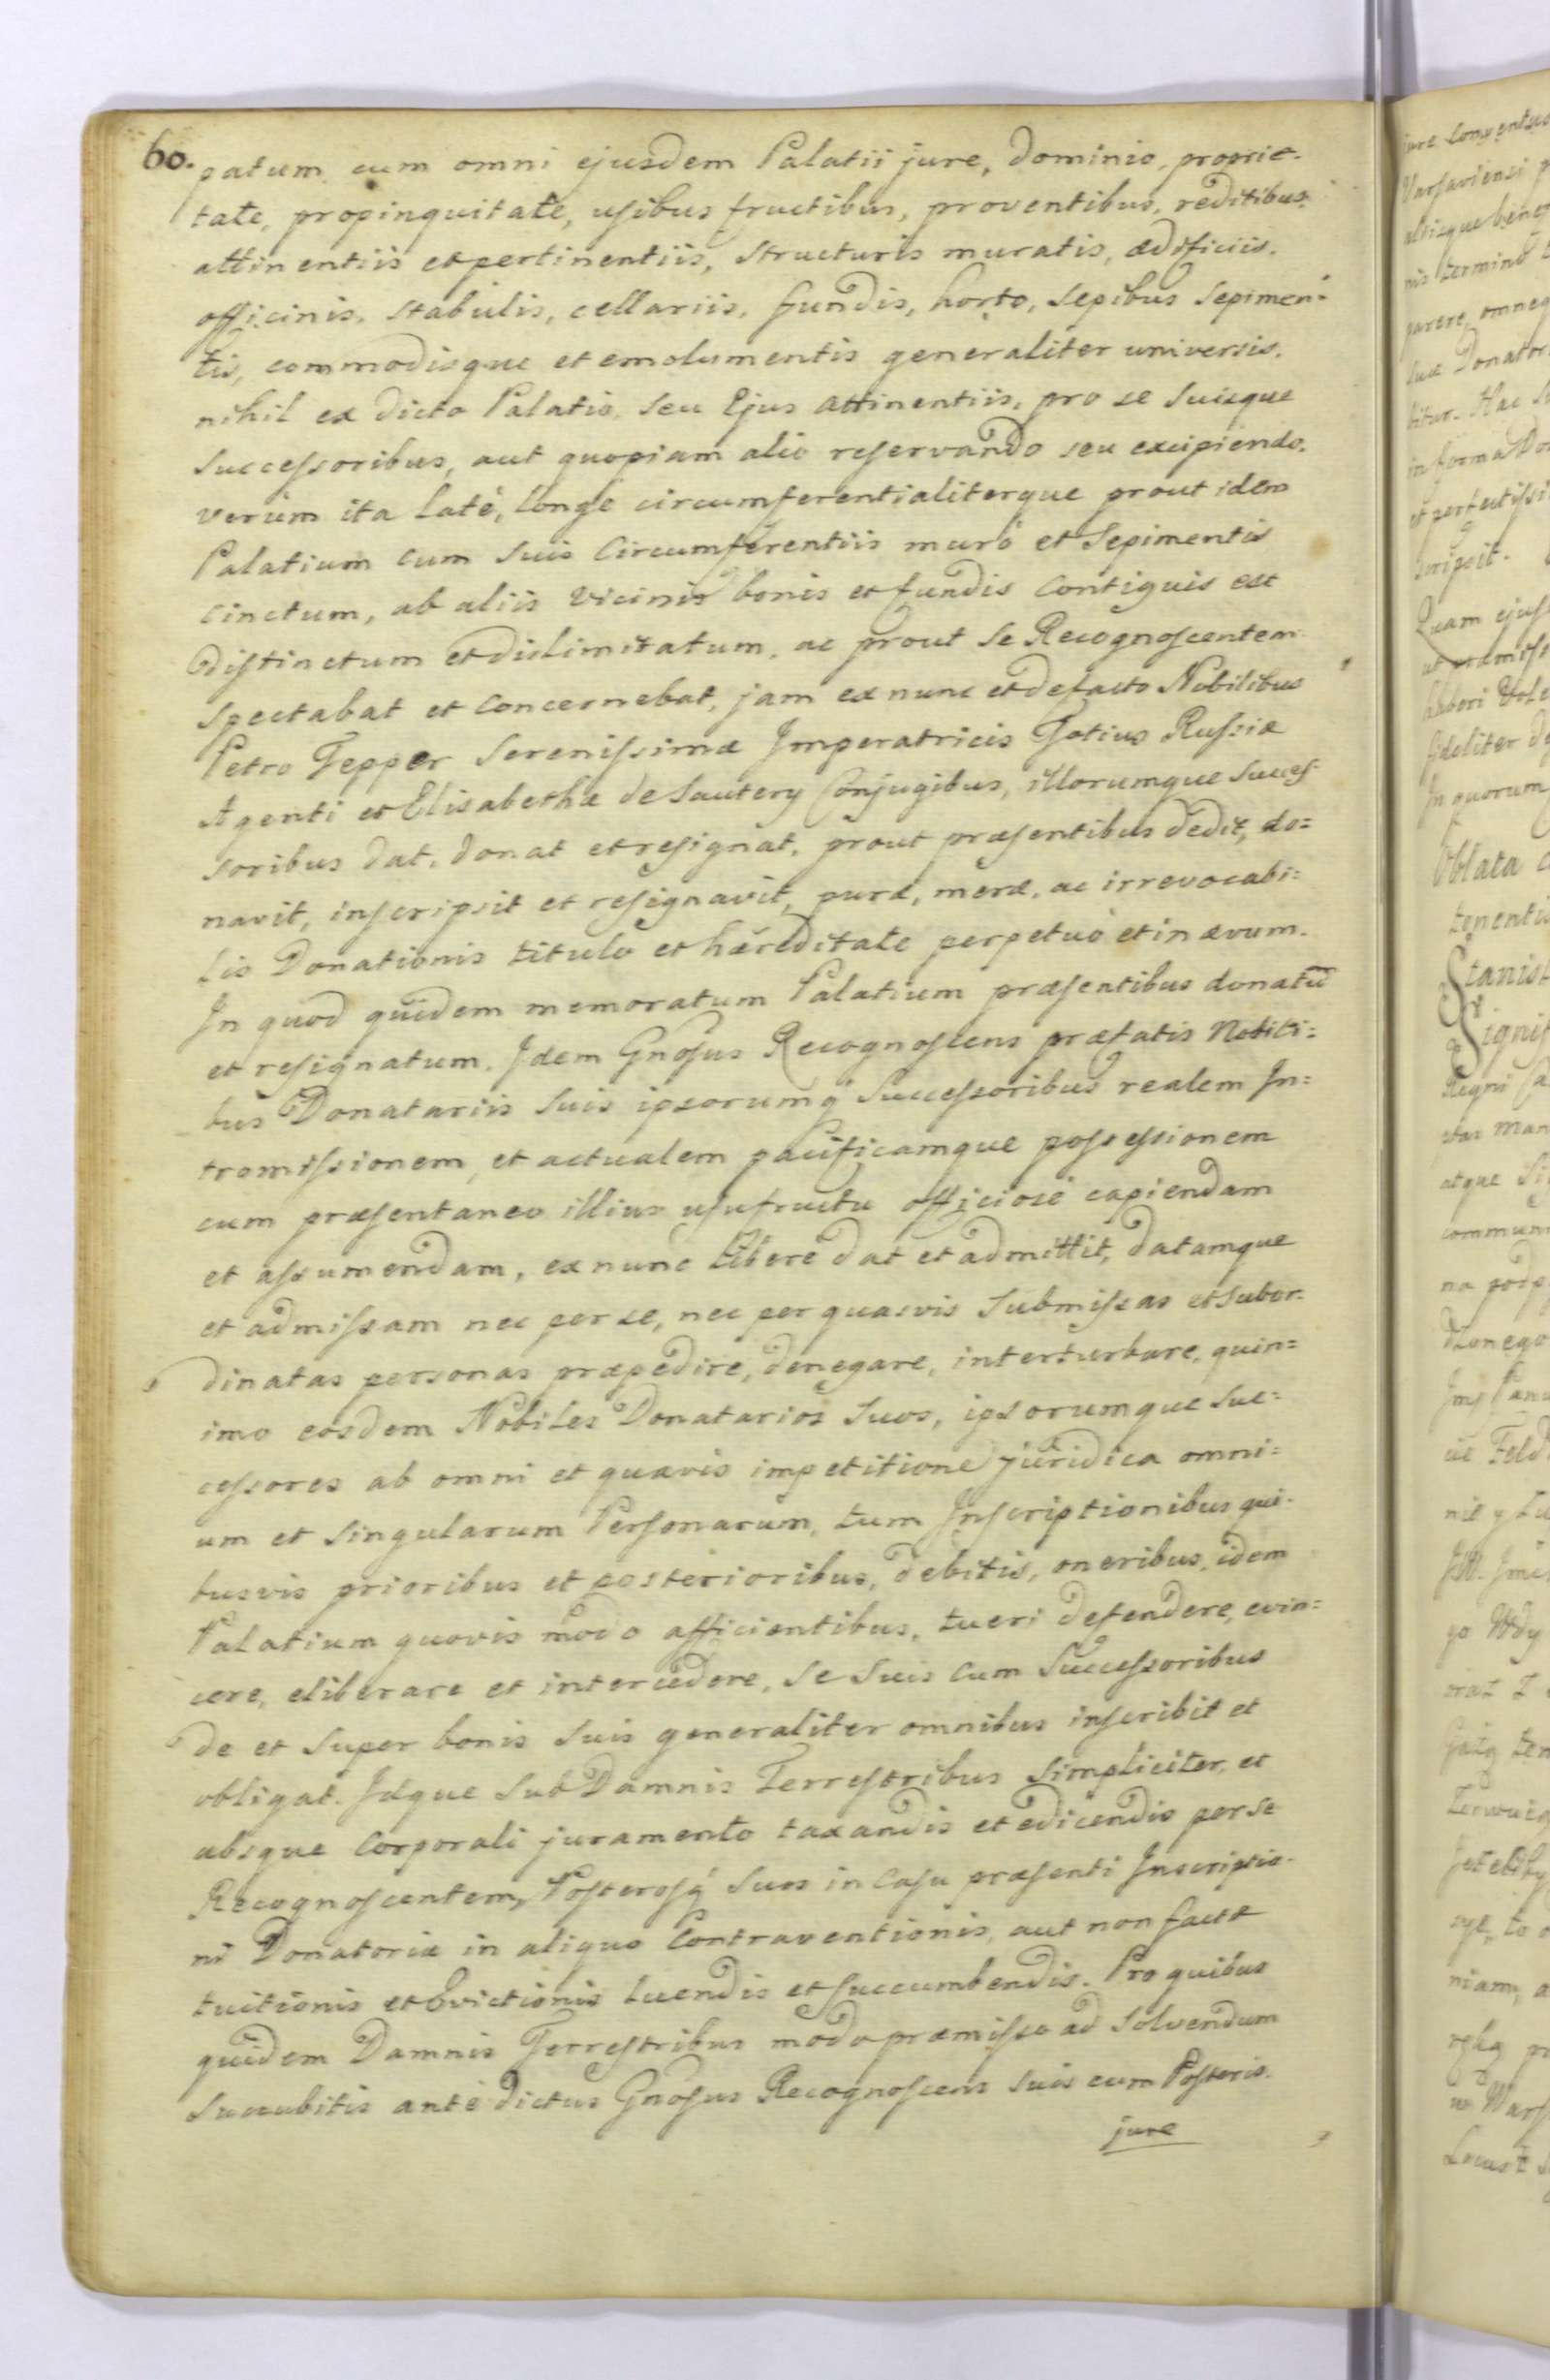 60.
patum cum omni ejusdem Palatii jure, Dominio, proprie-
tate, propinquitate, usibus fructibus, proventibus, reditibus,
attinentiis et pertinentiis, structuris muratis, ædificiis,
officinis, stabulis, cellariis, fundis, horto, sepibus sepimen=
tis, commodisque et emolumentis generaliter universis,
nihil ex dicto Palatio, seu Ejus attinentiis, pro se suisque
successoribus, aut quopiam alio reservando seu excipiendo,
verùm ita latè, longè circumferentialiterque prout idem
Palatium cum suis Circumferentiis murô et Sepimentis
cinctum, ab aliis vicinis bonis et fundis Contiguis est
distinctum et dislimitatum, ac prout se Recognoscentem
spectabat et Concernebat, jam ex nunc et de facto Nobilibus
Petro Tepper Serenissimæ Imperatricis Totius Russiæ
Agenti et Elisabethæ de Sautery Conjugibus, illorumque succes-
soribus dat, donat et resignat, prout præsentibus dedit, do=
navit, inscripsit et resignavit, puræ, meræ, ac irrevocabi=
lis Donationis titulo et hæreditate perpetuò et in ævum.
In quod quidem memoratum Palatium præsentibus donatū
et resignatum, Idem Gnosus Recognoscens præfatis Nobili=
bus Donatariis suis ipsorumq; Successoribus realem In=
tromissionem, et actualem pacificamque possessionem
cum præsentaneo illius usufructu officiosè capiendam
et assumendam, ex nunc liberè dat et admittit, datamque
et admissam nec per se, nec per quasvis submissas et subor=
dinatas personas præpedire, denegare, interturbare, quin=
imo eosdem Nobiles Donatarios suos, ipsorumque suc=
cessores ab omni et quavis impetitione juridica omni=
um et singularum Personarum, tum Inscriptionibus qui-
busvis prioribus et posterioribus, debitis, oneribus, idem
Palatium quovis modo afficientibus, tueri defendere, evin=
cere, eliberare et intercedere, se suis cum Successoribus
de et super bonis suis generaliter omnibus inscribit et
obligat. Idque sub Damnis Terrestribus simpliciter, et
absque Corporali juramento taxandis et edicendis per se
Recognoscentem, Posterosq; suos in Casu præsenti Inscriptio-
ni Donatoriæ in aliquo Contraventionis, aut non factæ
tuitionis et Evictionis luendis et succumbendis. Pro quibus
quidem Damnis Terrestribus modo præmisso ad solvendum
succubitis antè dictus Gnosus Recognoscens suis cum Posteris.
jure